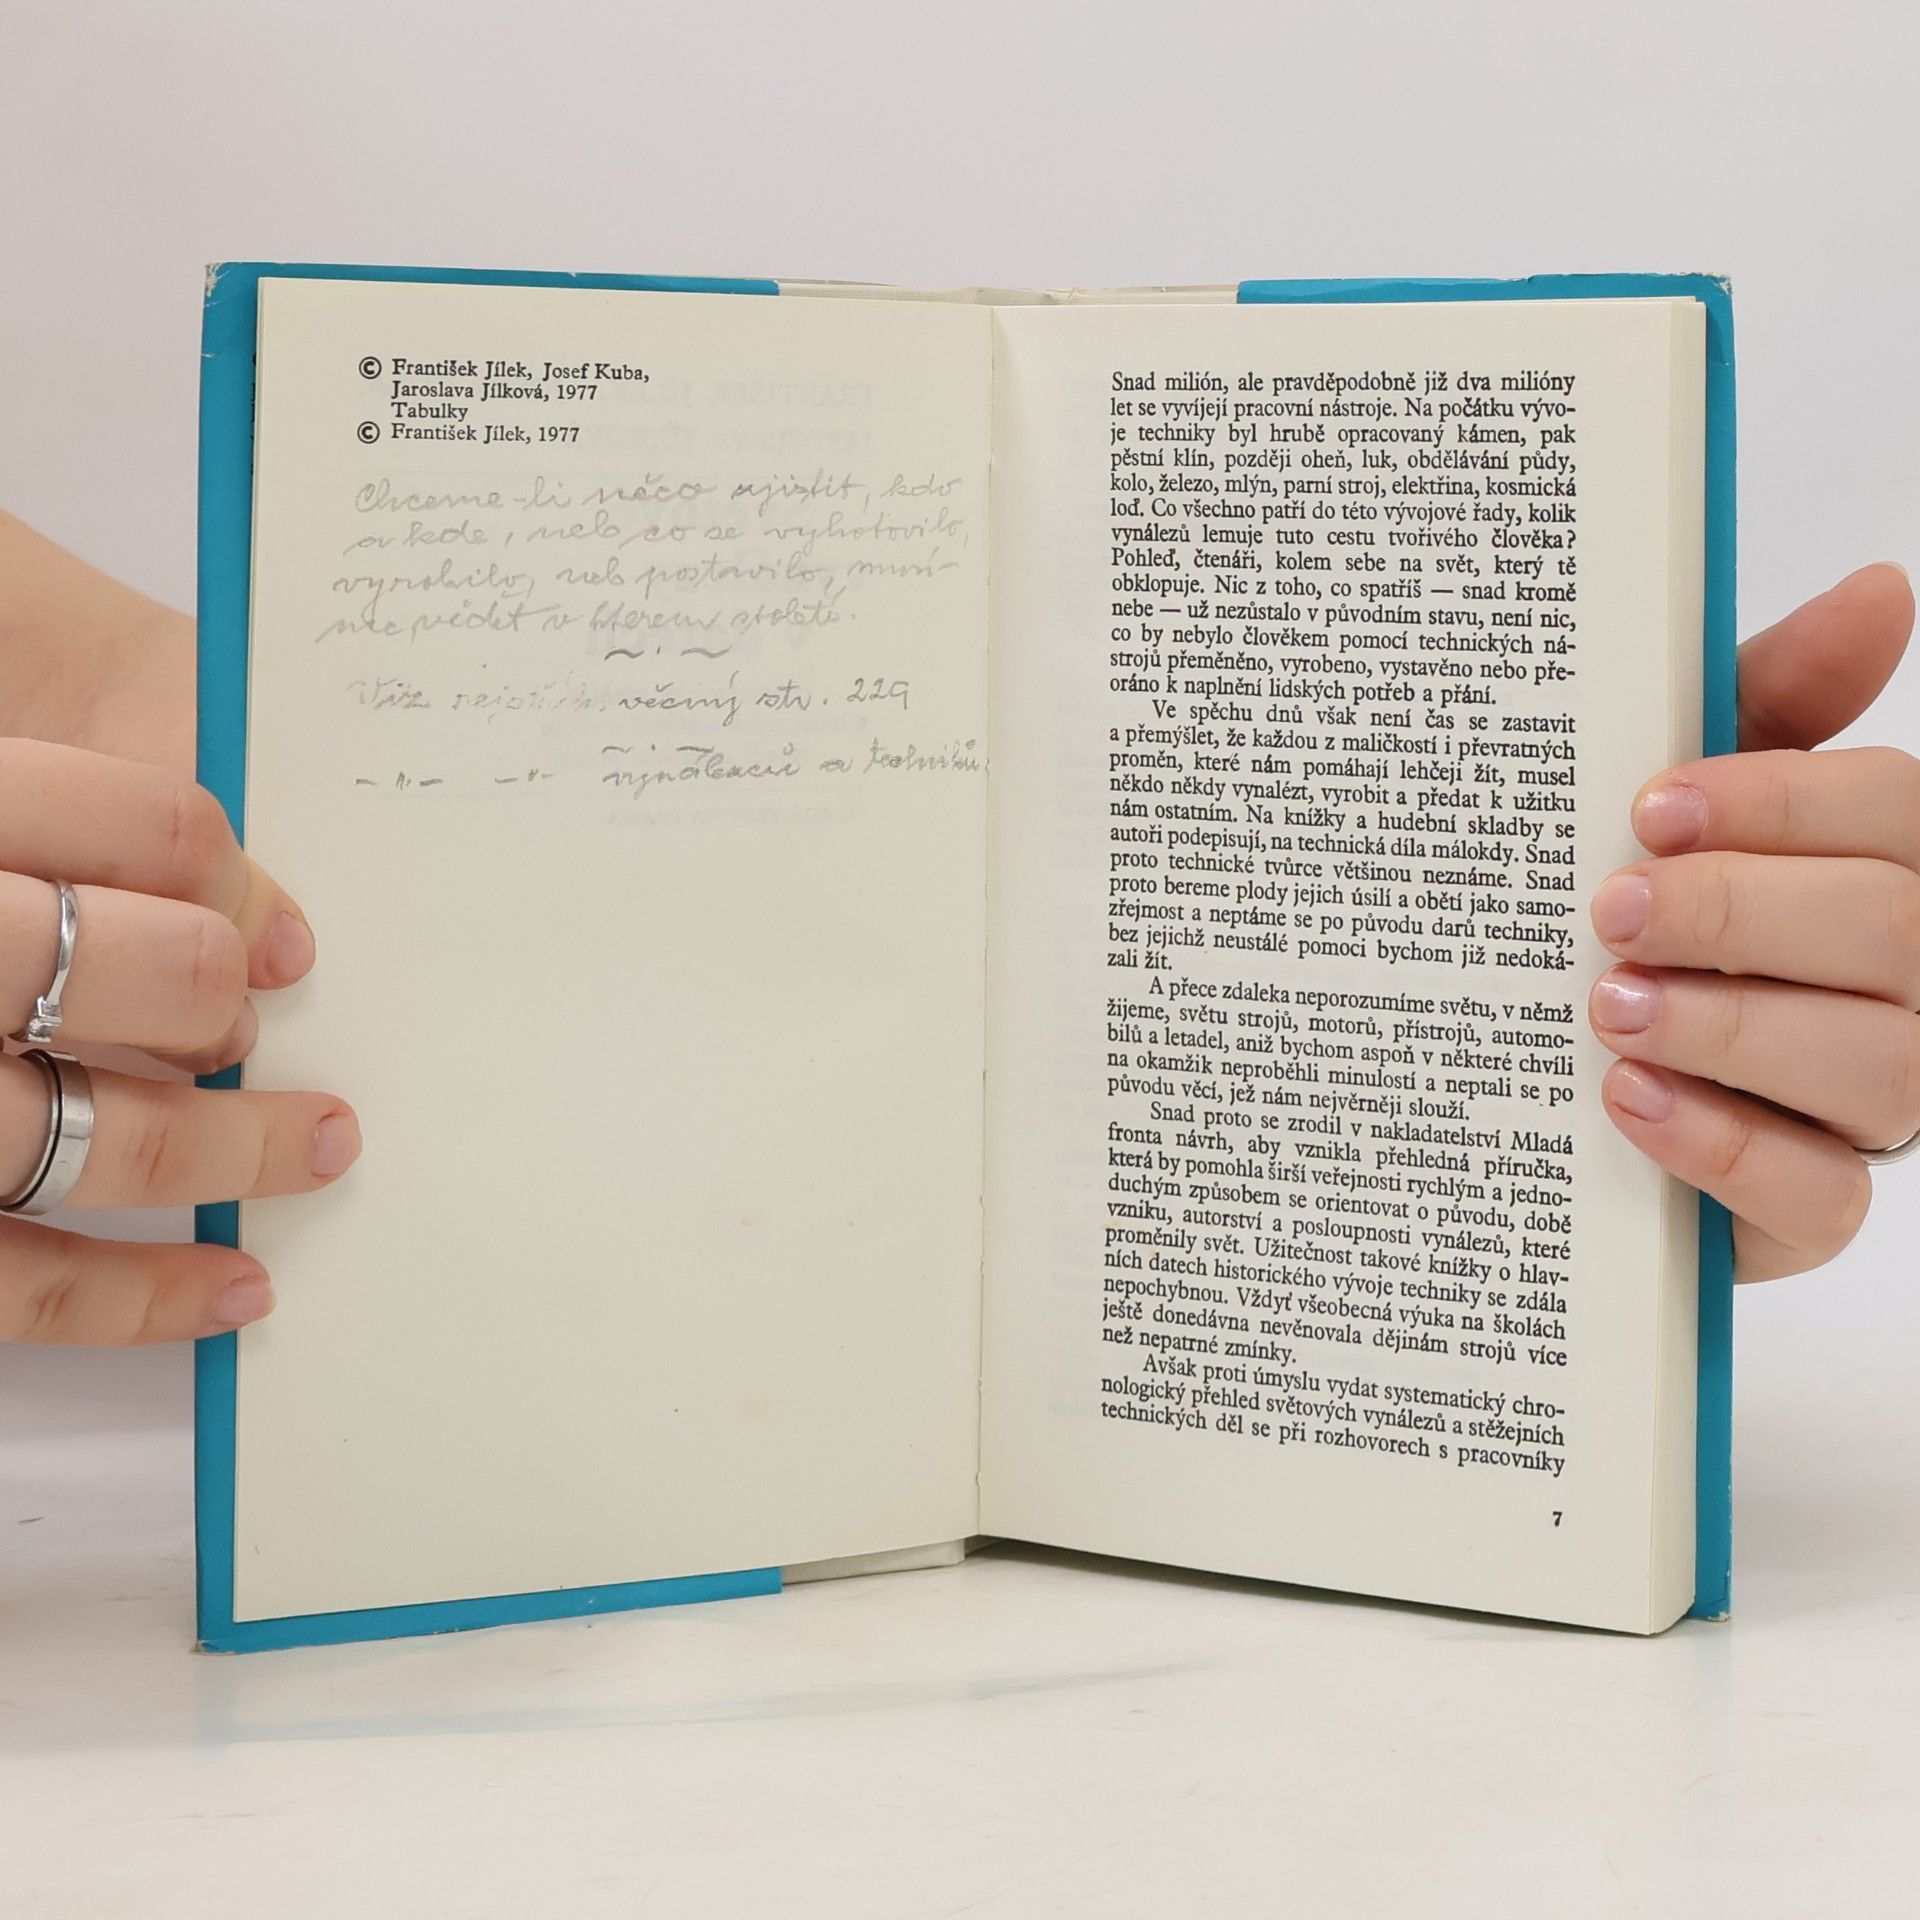 © František Jílek, Josef Kuba,
Jaroslava Jílková, 1977
Tabulky
© František Jílek, 1977
Chceme-li něco zjistit, kdo
a kde, neb co se vyhotovilo,
vyrobilo, neb postavilo, musí-
me vědět v kterem století.
Viz rejstřík věcný str. 229
— " — — " — vynálezců a techniků
Snad milión, ale pravděpodobně již dva milióny
let se vyvíjejí pracovní nástroje. Na počátku vývo-
je techniky byl hrubě opracovaný kámen, pak
pěstní klín, později oheň, luk, obdělávání půdy,
kolo, železo, mlýn, parní stroj, elektřina, kosmická
loď. Co všechno patří do této vývojové řady, kolik
vynálezů lemuje tuto cestu tvořivého člověka?
Pohleď, čtenáři, kolem sebe na svět, který tě
obklopuje. Nic z toho, co spatříš — snad kromě
nebe — už nezůstalo v původním stavu, není nic,
co by nebylo člověkem pomocí technických ná-
strojů přeměněno, vyrobeno, vystavěno nebo pře-
oráno k naplnění lidských potřeb a přání.
Ve spěchu dnů však není čas se zastavit
a přemýšlet, že každou z maličkostí i převratných
proměn, které nám pomáhají lehčeji žít, musel
někdo někdy vynalézt, vyrobit a předat k užitku
nám ostatním. Na knížky a hudební skladby se
autoři podepisují, na technická díla málokdy. Snad
proto technické tvůrce většinou neznáme. Snad
proto bereme plody jejich úsilí a obětí jako samo-
zřejmost a neptáme se po původu darů techniky,
bez jejichž neustálé pomoci bychom již nedoká-
zali žít.
A přece zdaleka neporozumíme světu, v němž
žijeme, světu strojů, motorů, přístrojů, automo-
bilů a letadel, aniž bychom aspoň v některé chvíli
na okamžik neproběhli minulostí a neptali se po
původu věcí, jež nám nejvěrněji slouží.
Snad proto se zrodil v nakladatelství Mladá
fronta návrh, aby vznikla přehledná příručka,
která by pomohla širší veřejnosti rychlým a jedno-
duchým způsobem se orientovat o původu, době
vzniku, autorství a posloupnosti vynálezů, které
proměnily svět. Užitečnost takové knížky o hlav-
ních datech historického vývoje techniky se zdála
nepochybnou. Vždyť všeobecná výuka na školách
ještě donedávna nevěnovala dějinám strojů více
než nepatrné zmínky.
Avšak proti úmyslu vydat systematický chro-
nologický přehled světových vynálezů a stěžejních
technických děl se při rozhovorech s pracovníky
7